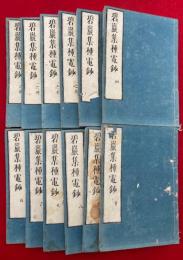 碧巖集種電鈔
碧巖集種電鈔
碧巖集種電鈔
碧巖集種電鈔
碧巖集種電鈔
碧巖集種電鈔
碧巖集種電鈔
碧巖集種電鈔
碧巖集種電鈔
碧巖集種電鈔
碧巖集種電鈔
碧巖集種電鈔